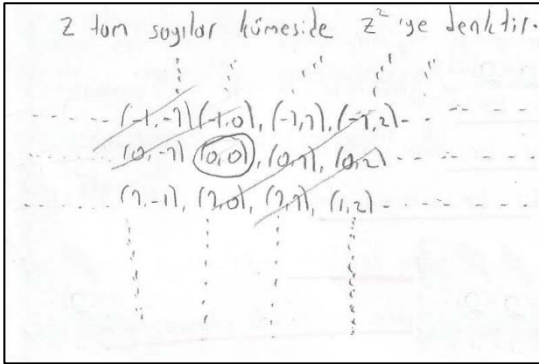 Z tam sayılar kümeside Z² 'ye denktir.
------ (-1,-1) (-1,0), (-1,1), (-1,2)- - - -
------ (0,-1) (0,0), (0,1), (0,2) - - - - - -
------ (1,-1), (1,0), (1,1), (1,2)- - - - - - -